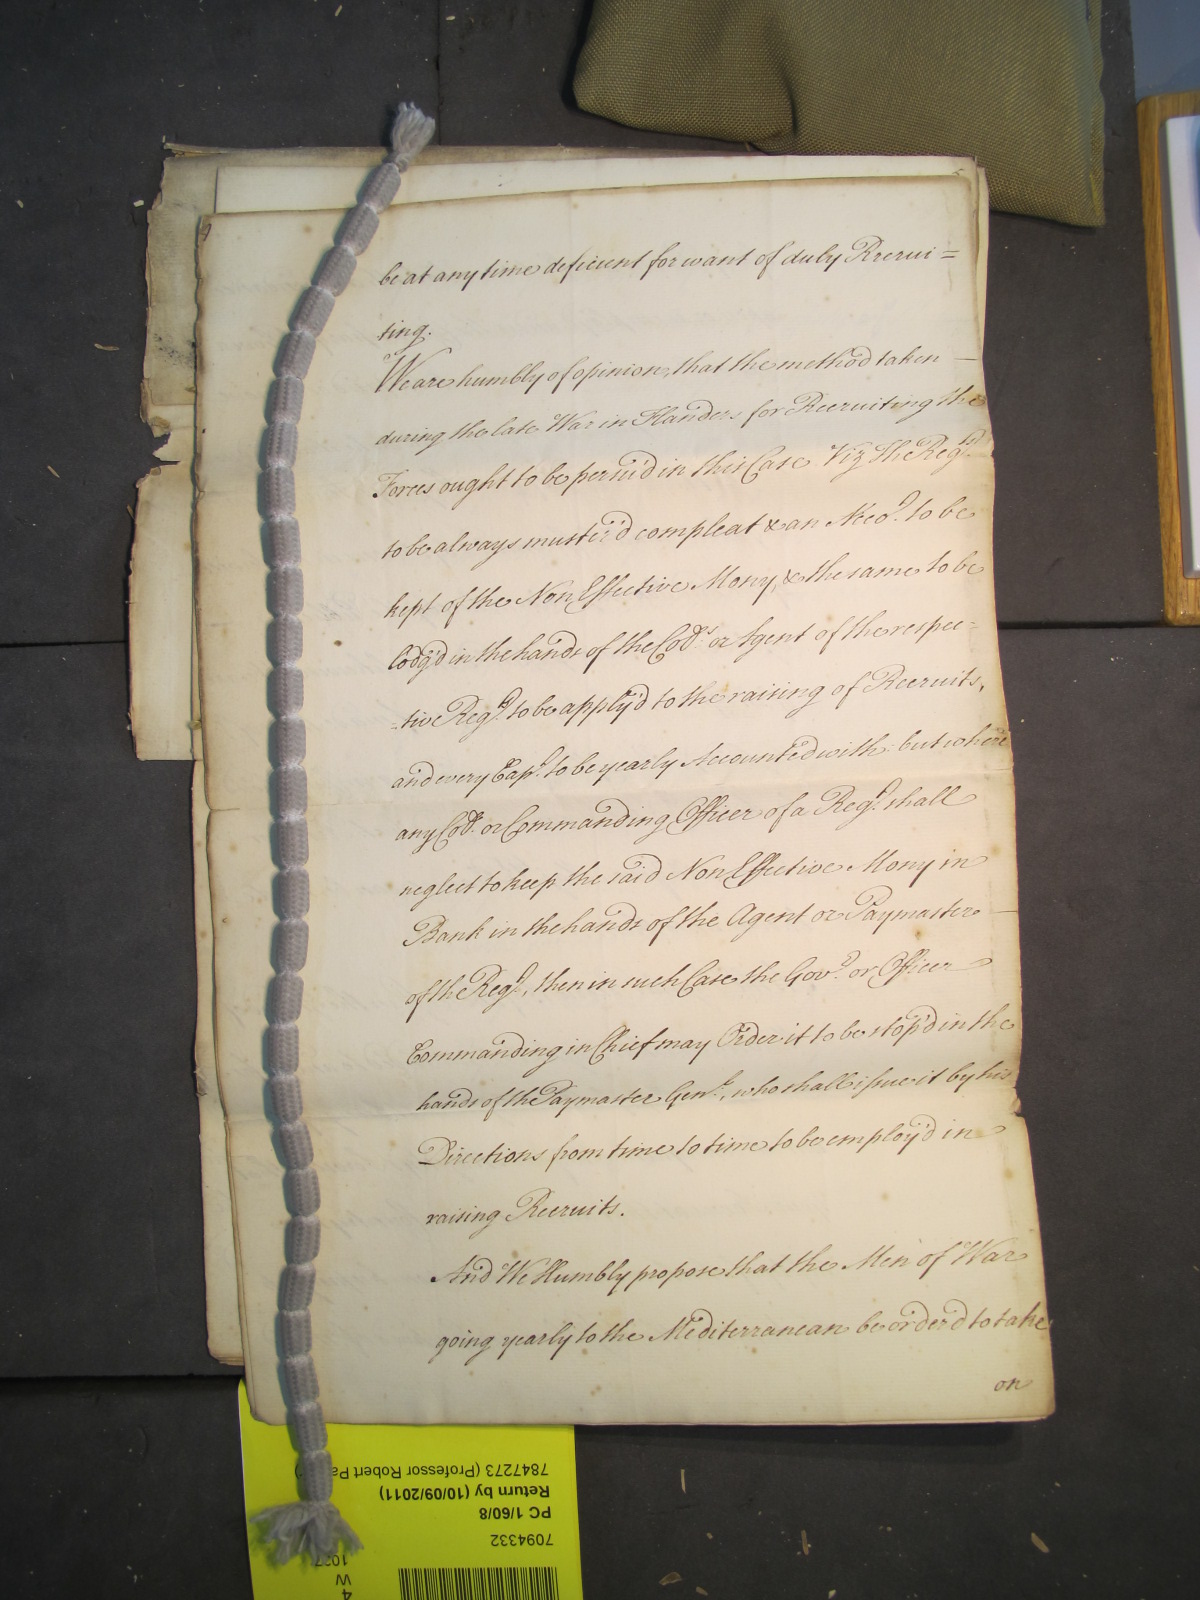 be at any time deficient for want of duly Recrui=
ting.
We are humbly of opinion, that the method taken
during the late War in Flanders for Recruiting the
Forces ought to be persu'd in this Case Viz The Regts
to be always muster'd compleat & an Acco.t to be
kept of the Non Effective Mony, & the same to be
lodg'd in the hands of the Coll.s or Agent of the respec=
=tive Reg.t to be apply'd to the raising of Recruits,
and every Cap.t to be yearly Accounted with: but where
any Coll. or Commanding Officer of a Reg.t shall
neglect to keep the said Non Effective Mony in
Bank in the hands of the Agent or Paymaster
of the Reg.t, then in such Case the Gov.r or Officer
Commanding in Chief may Order it to be stop'd in the
hands of the Paymaster Gen.l, who shall issue it by his
Directions from time to time to be employ'd in
raising Recruits.
And We Humbly propose that the Men of War
going yearly to the Mediterranean be order'd to take
on
7847273 (Professor Robert Pa
Return by (10/09/2011)
PC 1/60/8
7094332
W
4